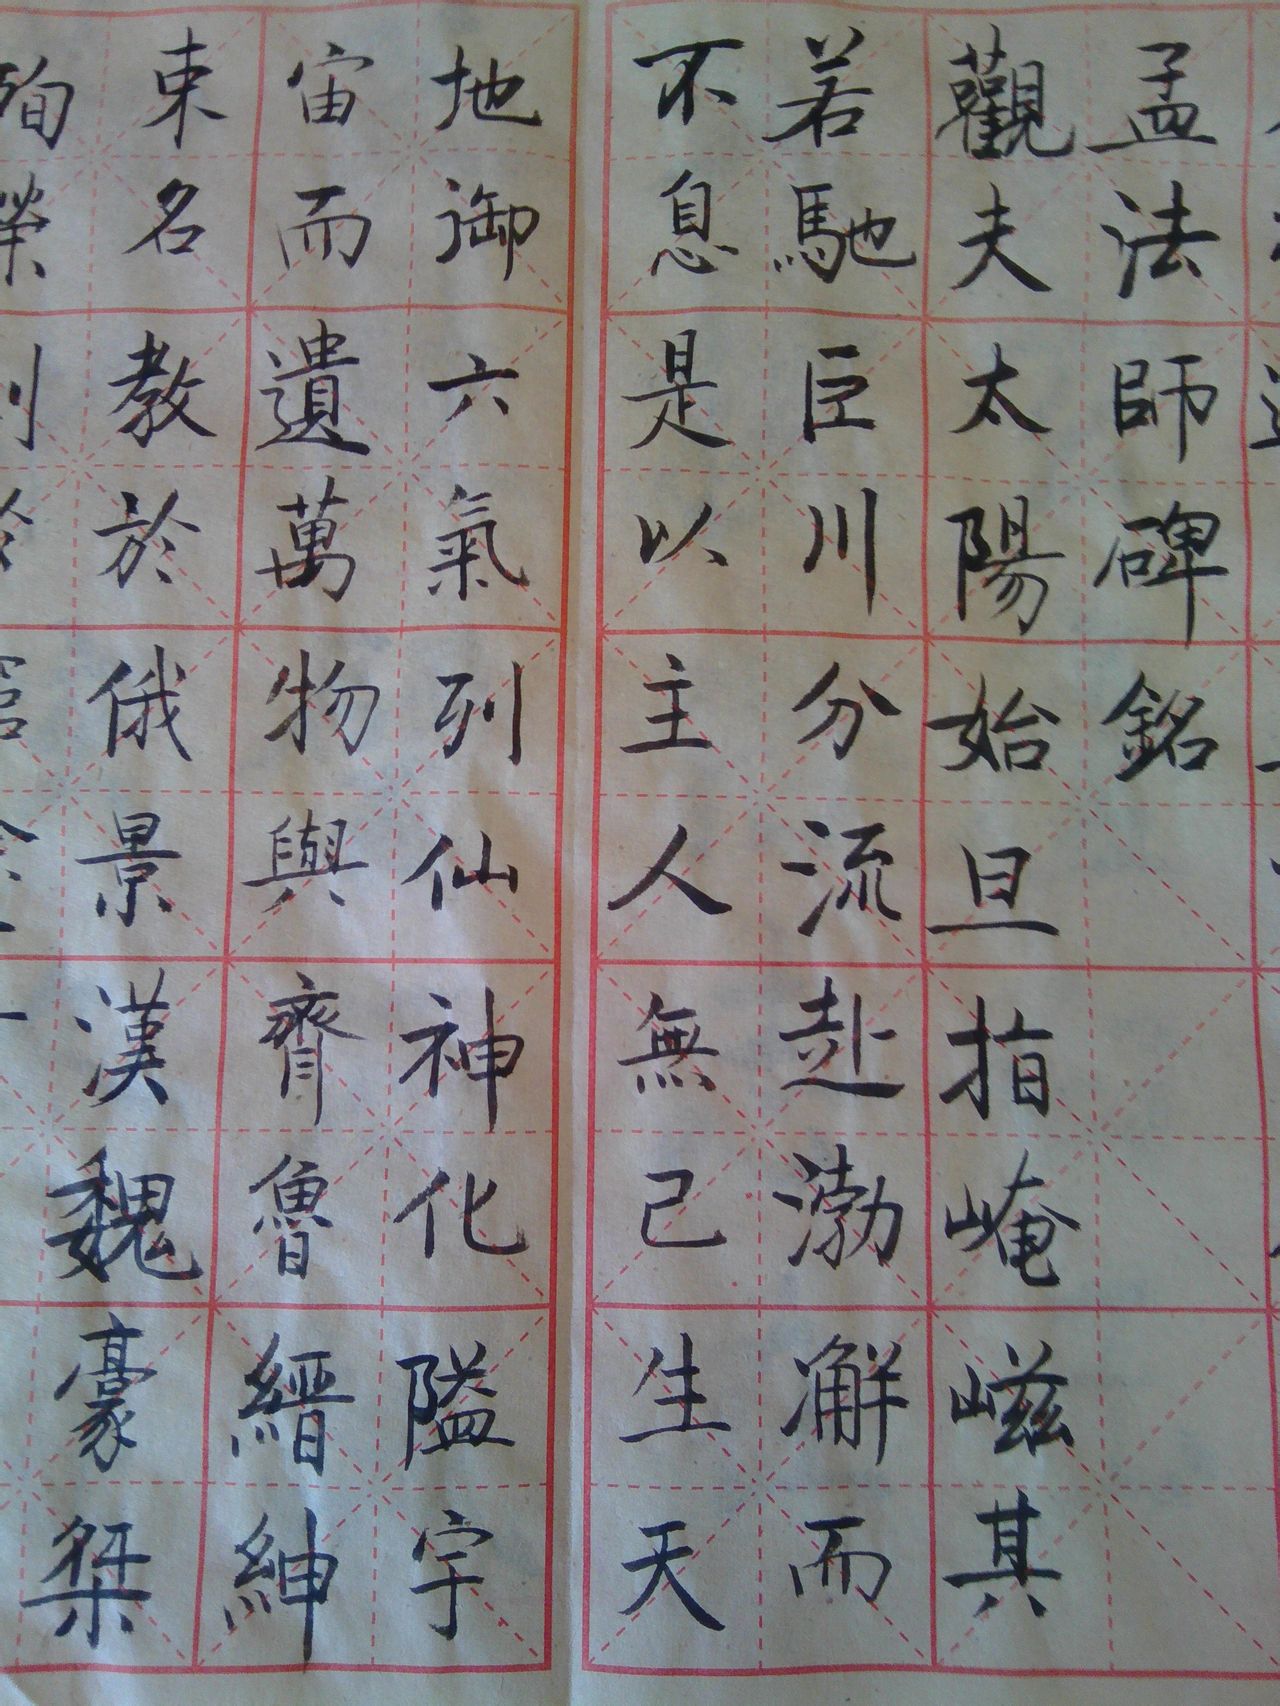 孟法師碑銘
觀夫太陽始旦指崦嵫其
若馳臣川分流赴渤澥而
不息是以主人無己生天
地御六氣列仙神化隘宇
宙而遺萬物與齊魯縉紳
束名教於俄景漢魏豪桀